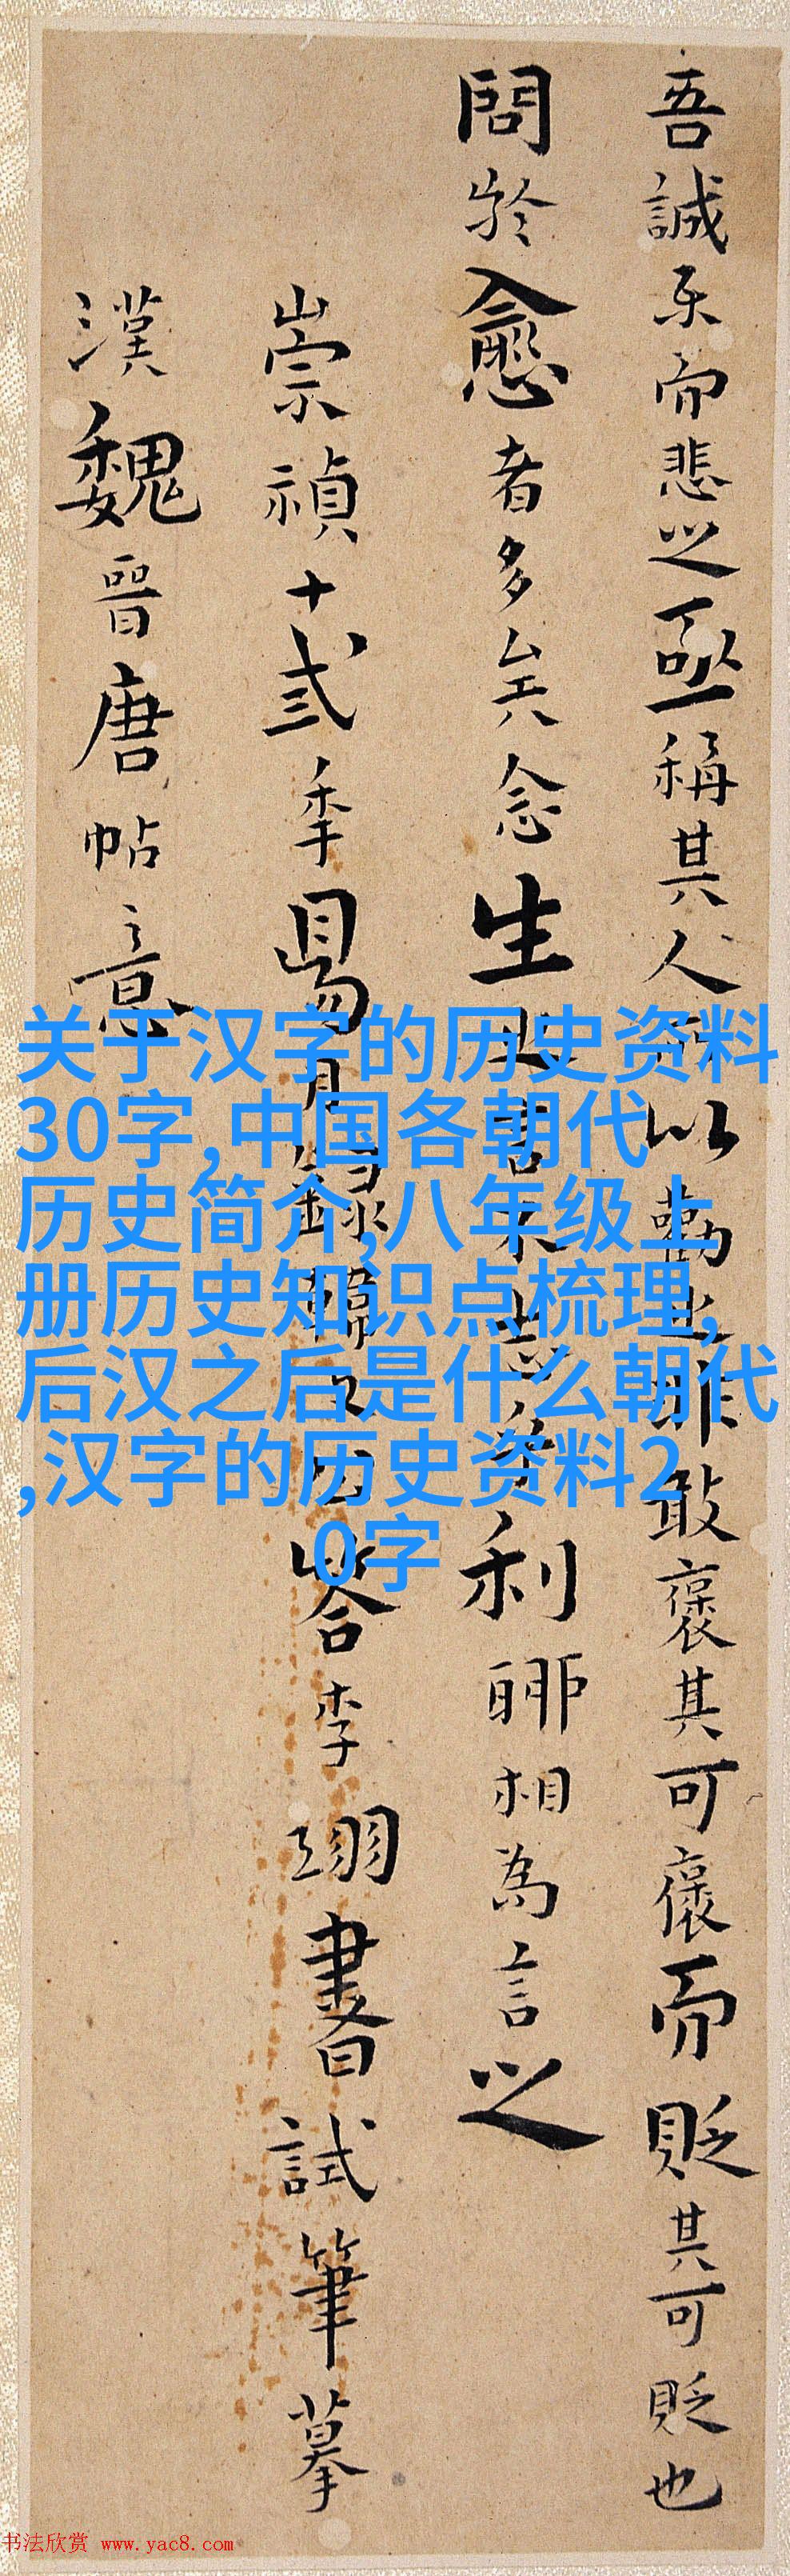 吾誠樂而悲之亟稱其人
以勸之非敢褒其可褒而貶其可貶也
問於愈者多矣念生之言不志乎利聊相為言之
崇禎十弍季
月錄韓
答李翊書試筆摹
漢魏晉唐帖意
关于汉字的历史资料
30字,中国各朝代
历史简介,八年级上
册历史知识点梳理,
后汉之后是什么朝代
,汉字的历史资料2
0字
书法欣赏 www.yac8.com